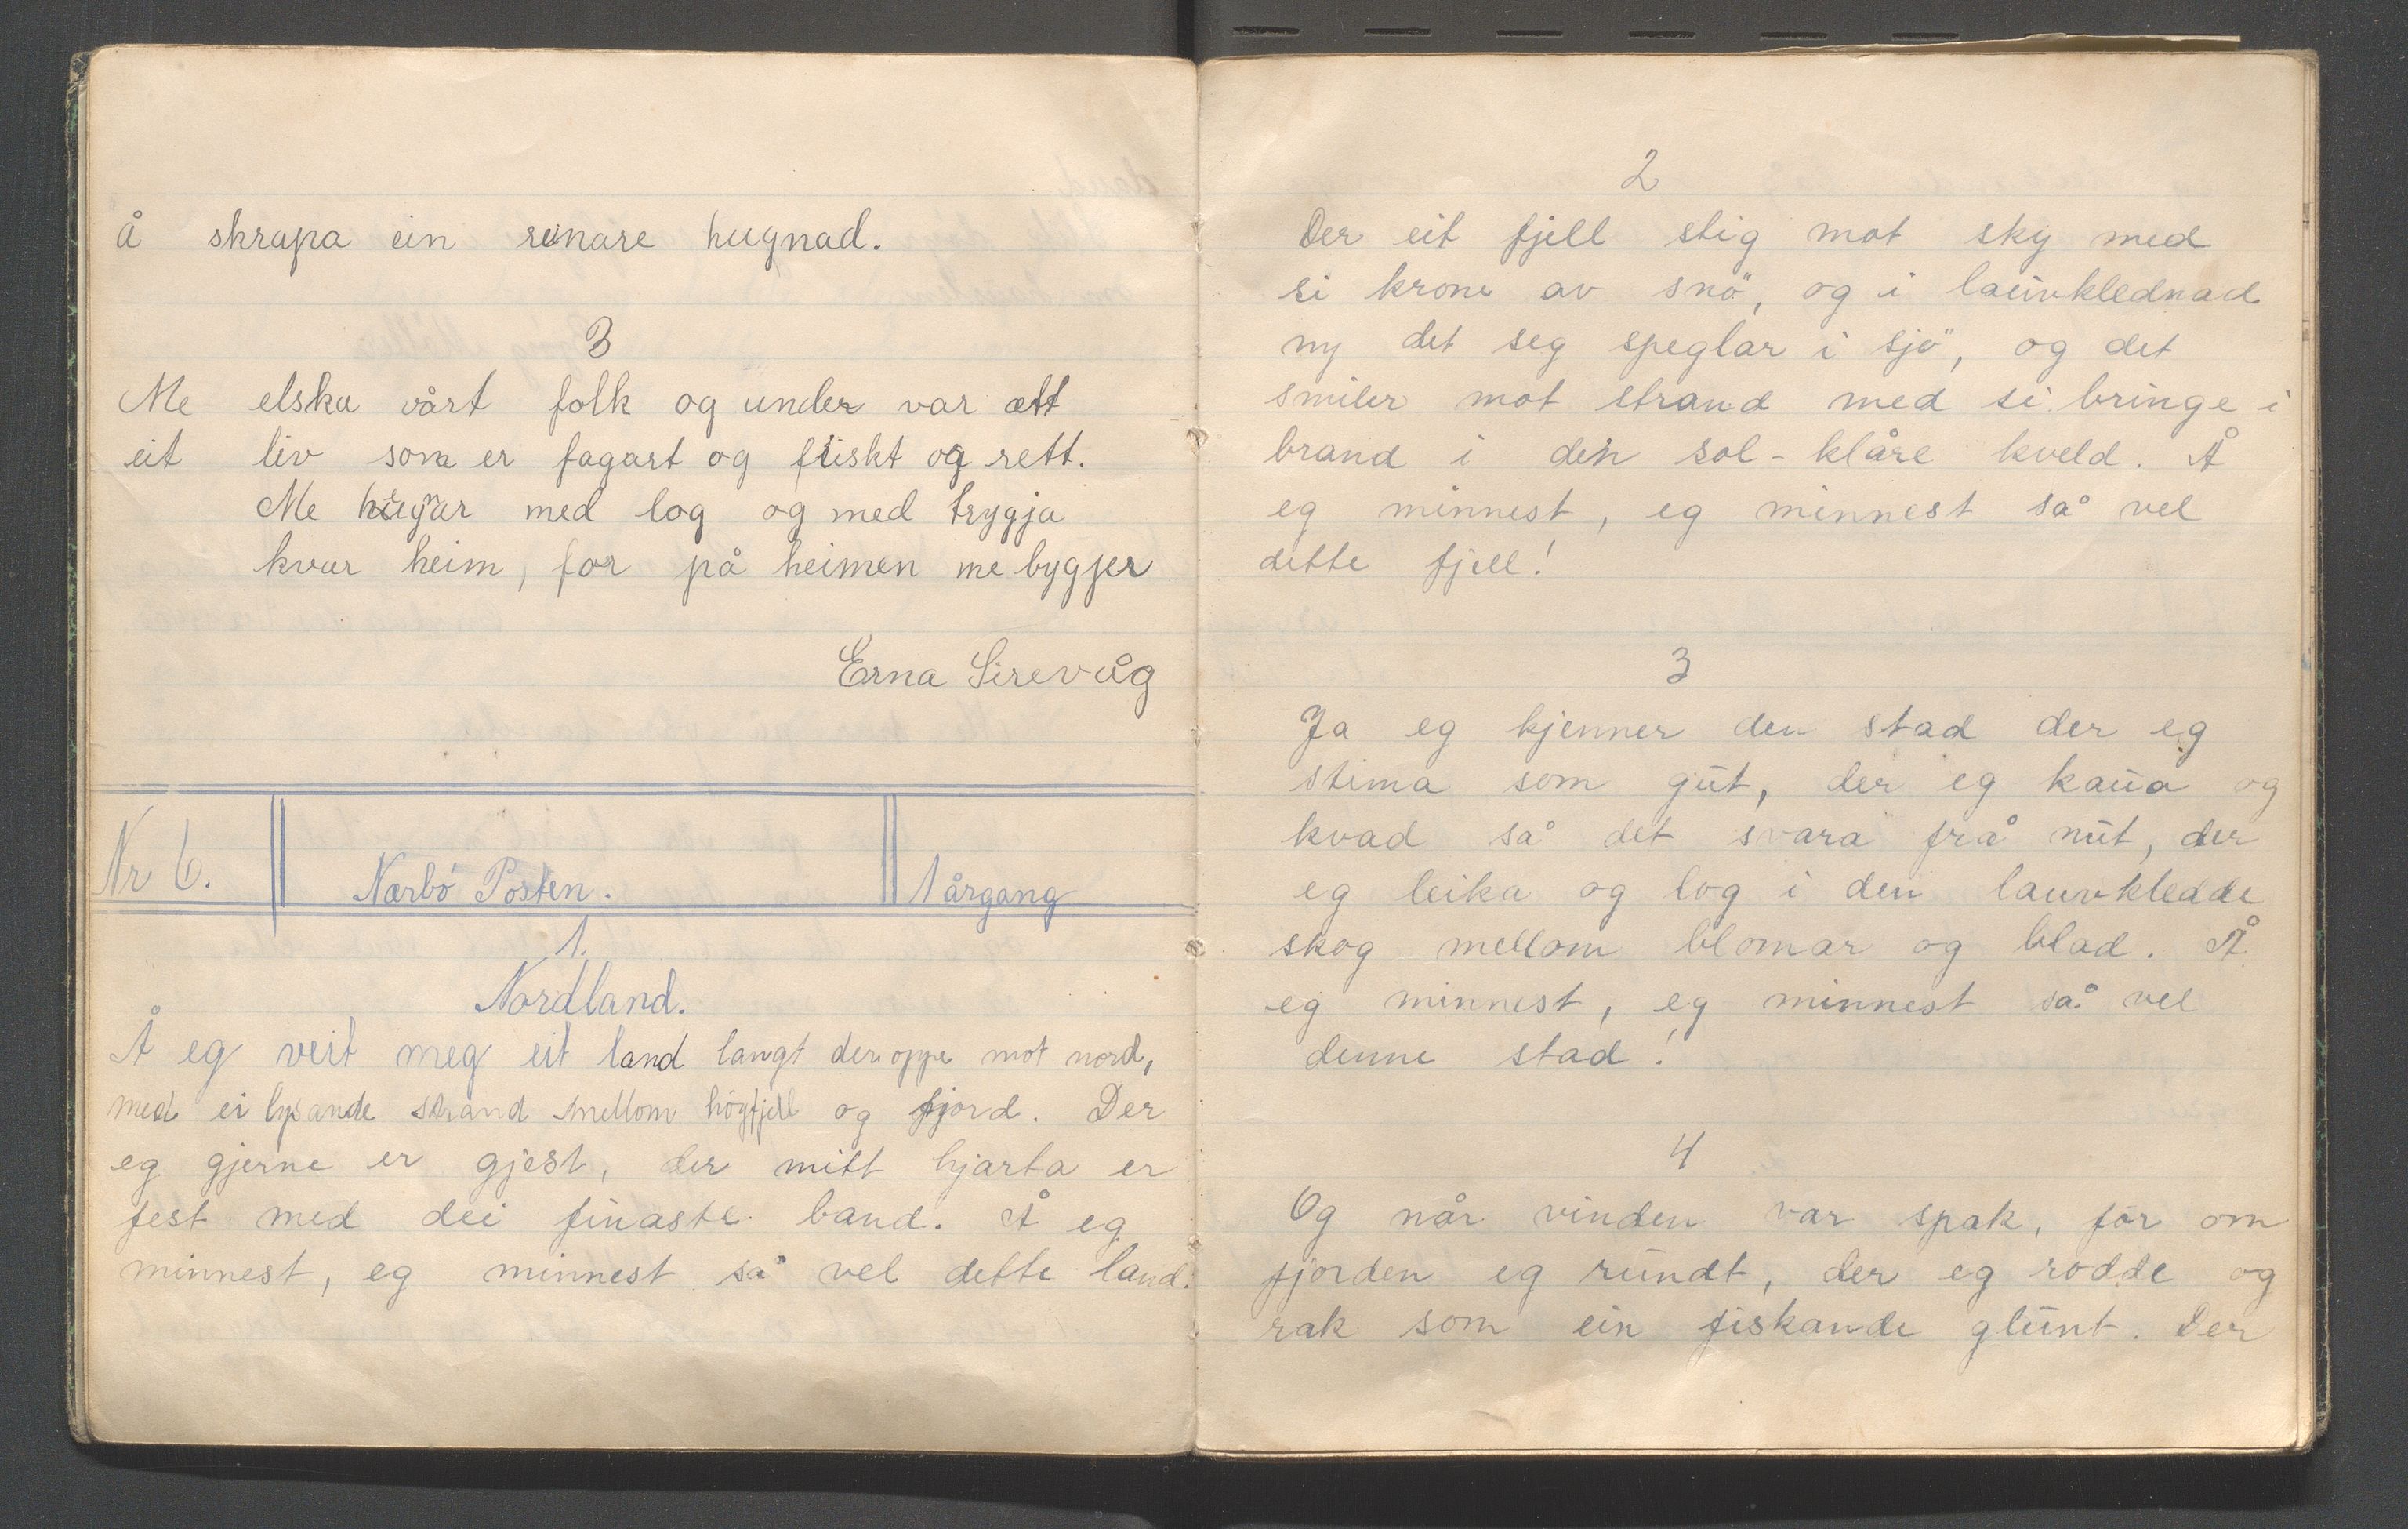 å skrapa ein reinare hugnad.
3
Me elska vårt folk og under var ætt
eit liv som er fagart og friskt og rett.
Me med log og med trygja
kvar heim, for på heimen me bygjer
Erna Sirevåg
Nr 6. Nærbö Posten. 1 årgang
1.
Nordland.
Å eg veit meg eit land langt der oppe mot nord,
med ei lysande strand mellom högfjell og fjord. Der
eg gjerne er gjest, der mitt hjarta er
fest med dei finaste band. Å eg
minnest, eg minnest så vel dette land.
2
Der eit fjell stig mot sky med
si krone av snö, og i lauvklednad
ny det seg speglar i sjö, og det
smiler mot strand med si bringe i
brand i den sol-klåre kveld. Å
eg minnest, eg minnest så vel
dette fjell!
3
Ja eg kjenner den stad der eg
stima som gut, der eg kaua og
kvad så det svara frå nut, der
eg leika og log i den lauvkledde
skog mellom blomar og blad. Å
eg minnest, eg minnest så vel
denne stad!
4
Og når vinden var spak, for om
fjorden eg rundt, der eg rodde og
rak som ein fiskande glunt. Der